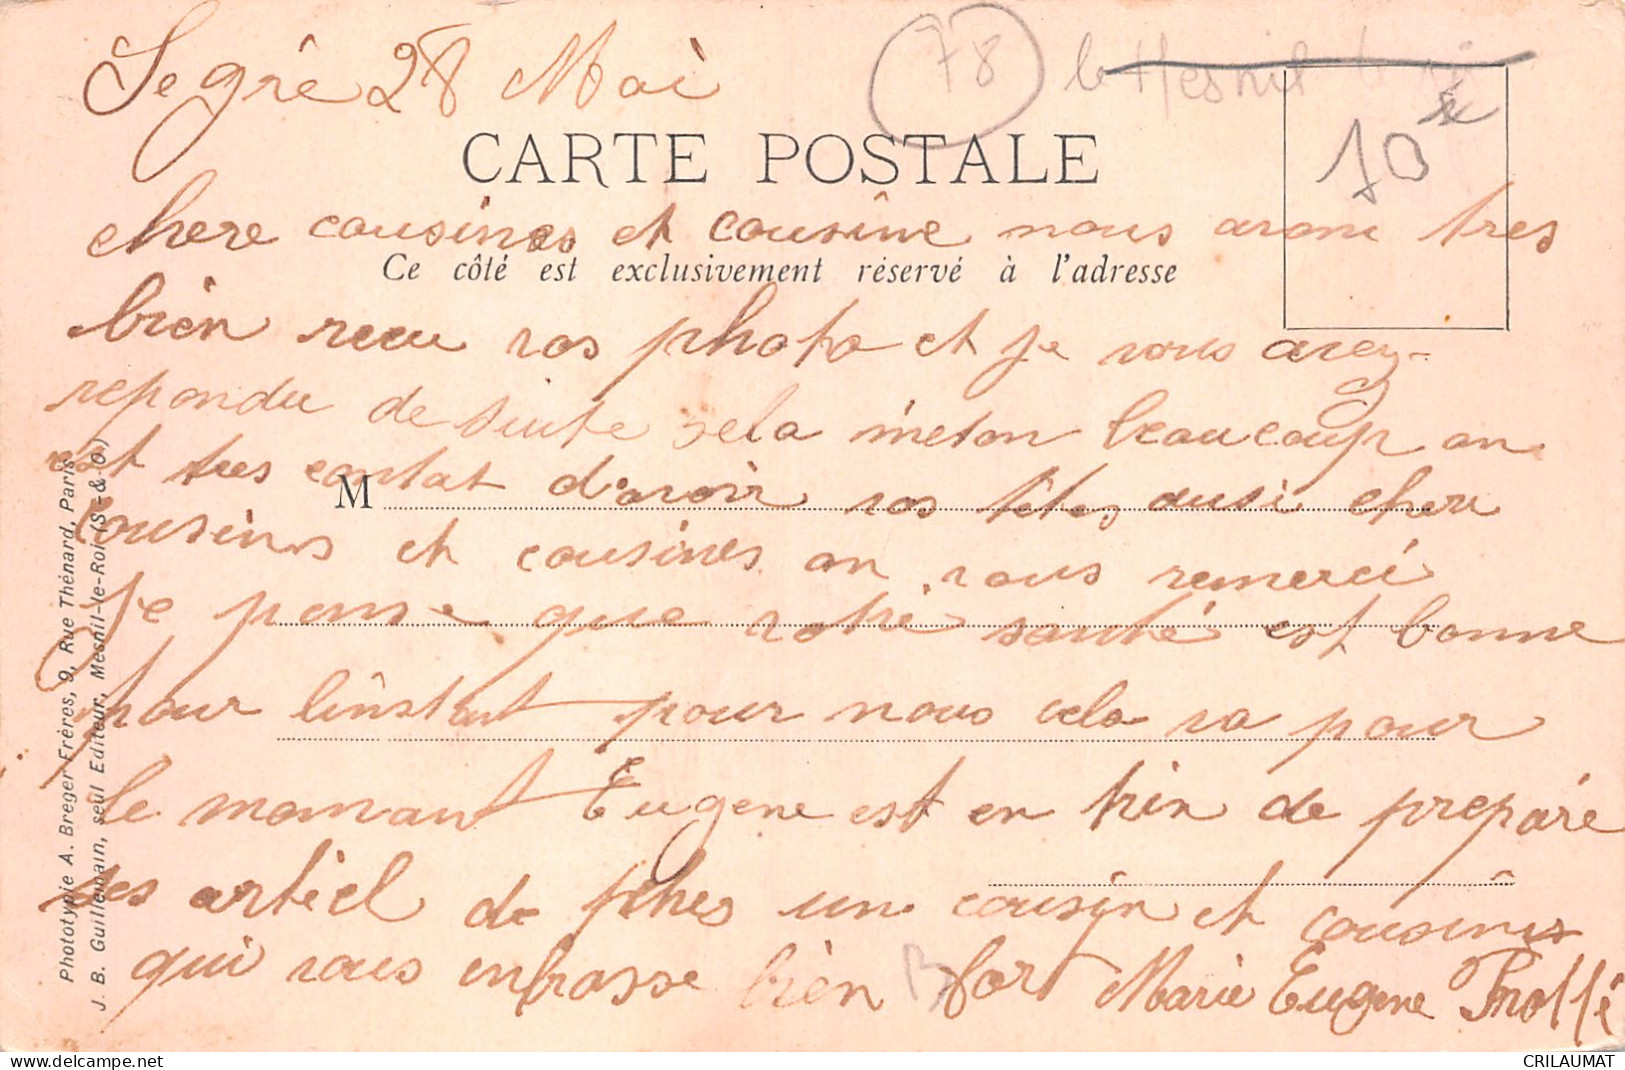 Segré 28 Mai
78
le Mesnil le
10
CARTE POSTALE
chere cousines et cousine nous avons tres
Ce côté est exclusivement réservé à l'adresse
bien recu vos photo et je vous avez
repondu de suite sela m'eton beaucoup on
est tres contat d'avoir vos têtes ausi cheru
M
cousins et cousines on vous remerci
je panse que votre santé est bonne
pour l'instant pour nous cela va pour
le momant Eugene est en trin de prepare
ses artiel de phes un cousin et cousines
qui vous enbrasse bien fort Marie Eugene
Phototypie A. Breger Frères, 9, Rue Thénard, Paris
J. B. Guillemain, seul Editeur, Mesnil-le-Roi (S-&-O)
CRILAUMAT